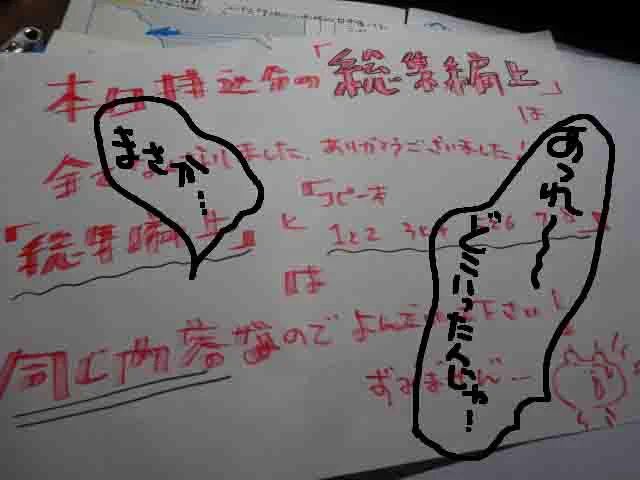 本日持込分の「総集編上」は
全て しました、ありがとうございました！
「総集編上」と『コピー本
1と2 3と4 5と6 7と8』
は
同じ内容なので よんで 下さい！
すみません…
まさか…
あっれ～～
どこいったんじゃ！